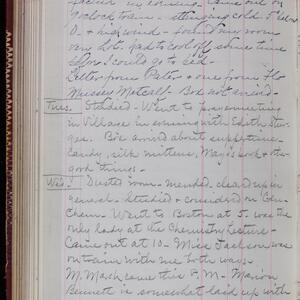 o'clock train - stinging cold. 5° below
0. & high wind - found my room
very hot. had to cool off some time
before I could go to bed -
Letter from Peter & one from Flo
Mussey Metcalf. Box not arrived -
Tues. Studied - Went to prayermeeting
in Village in evening with Edith
ges. Box arrived about suppertime -
Candy, silk mittens, May's book &
good things -
Wed. Dusted room - mended, cleared up in
general. Studied & considered on
Chem - Went to Boston at 5. was the
only lady at the Chemistry Lecture -
Came out at 10 - Miss Jackson was
on train with me both ways -
M. March came this P.M. - Marion
Bennett is somewhat laid up with